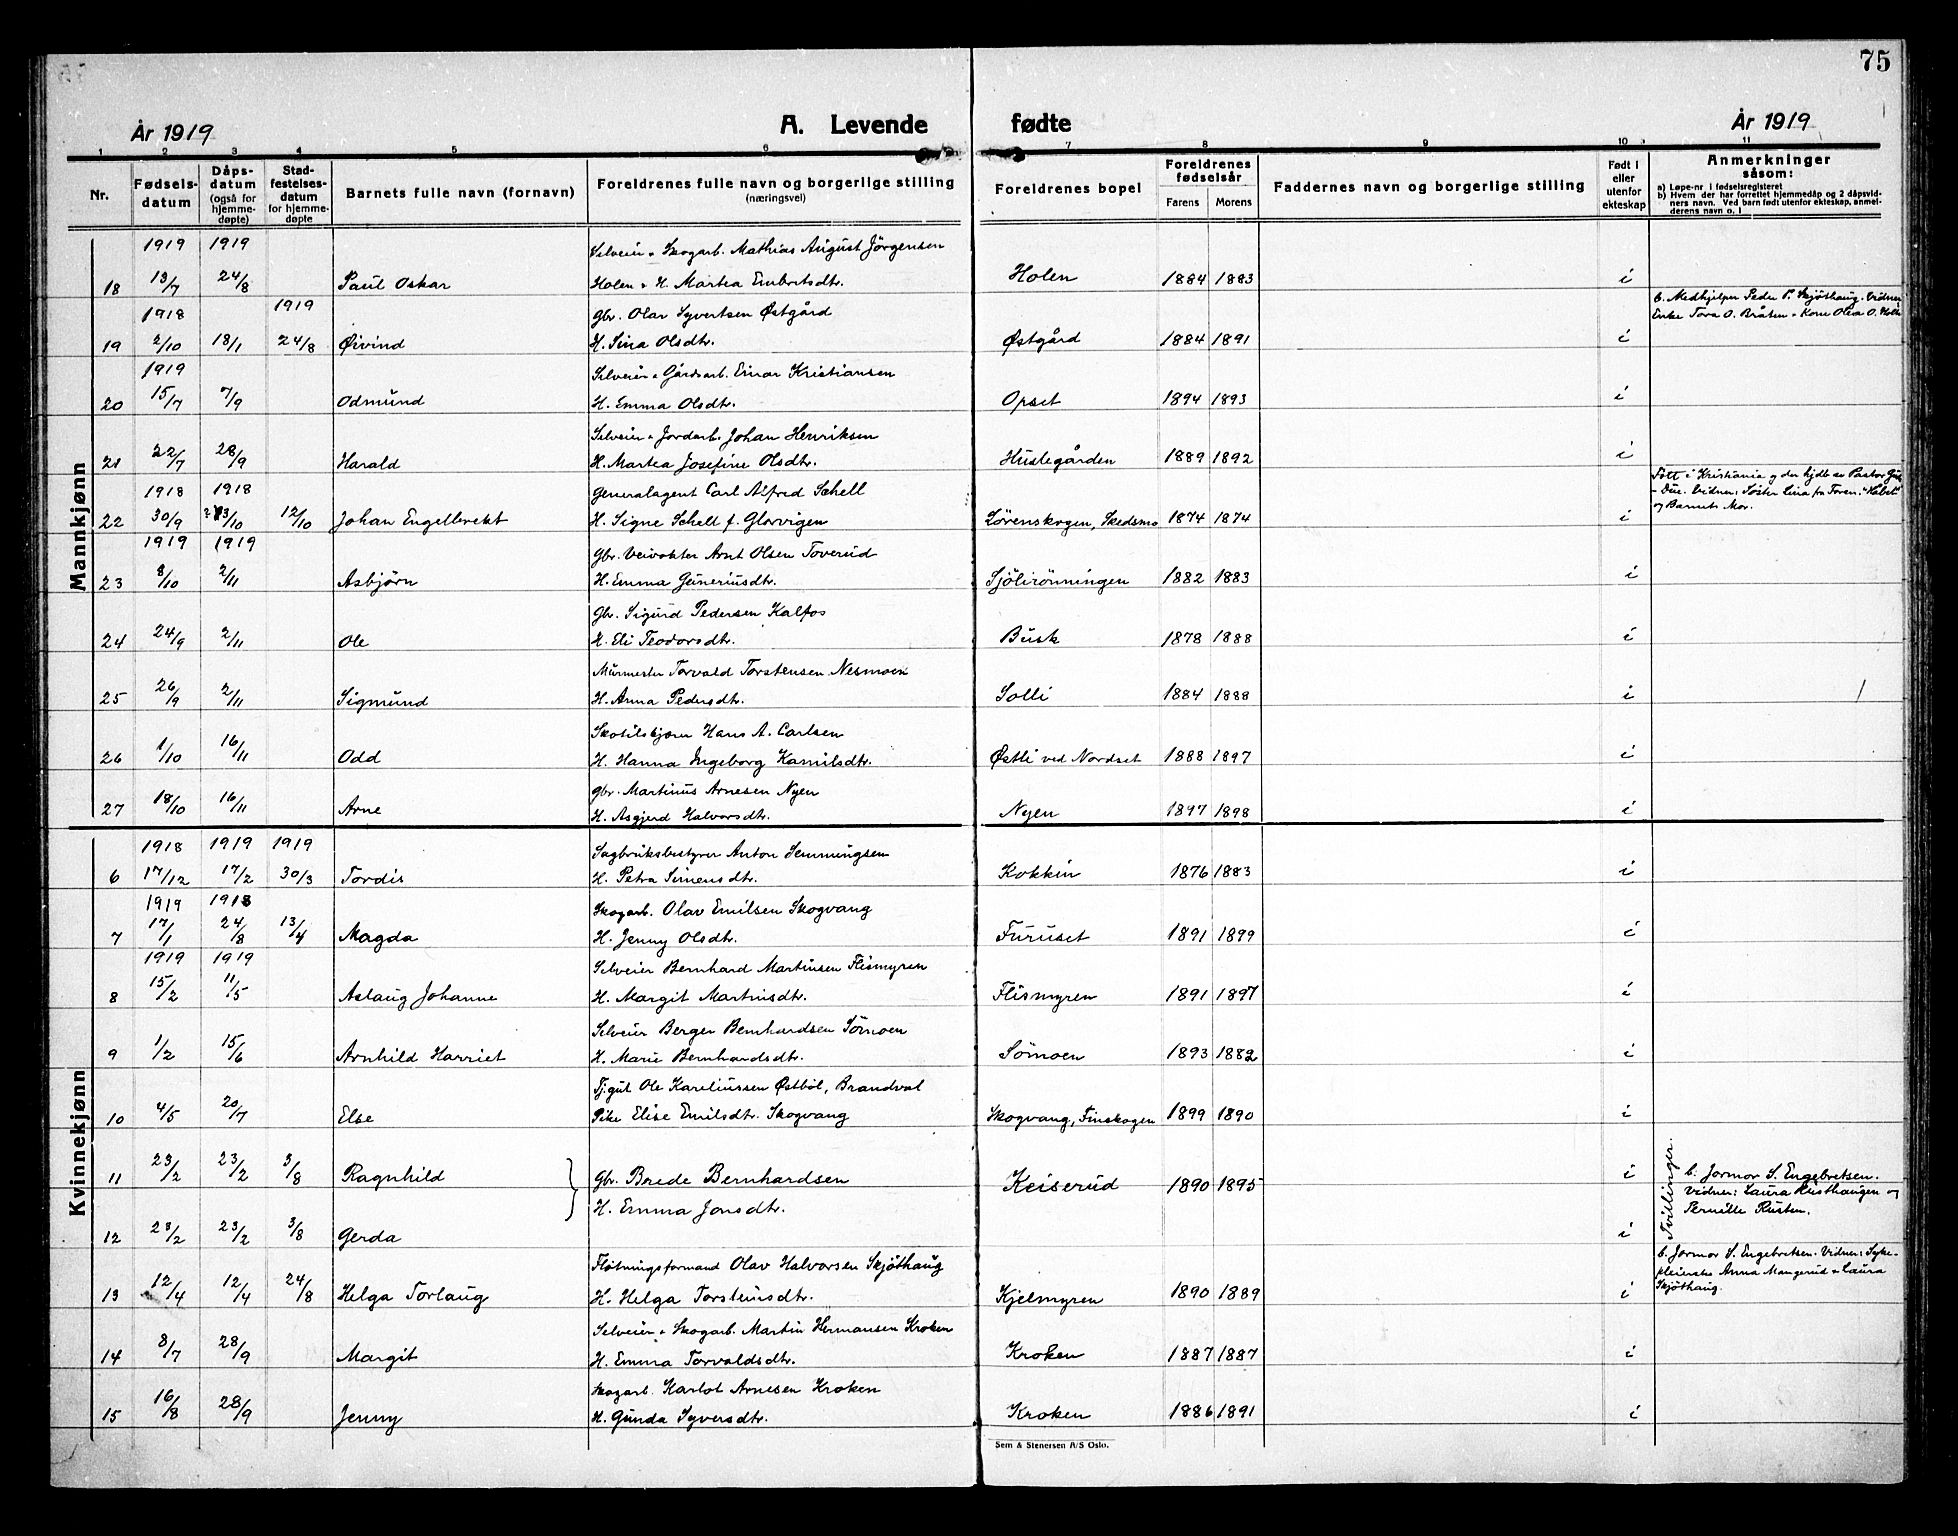 75
År 1919
A. Levende fødte
År 1919
1 2 3 4 5 6 7 8 9 10 11
Nr.
Fødsels-datum
Dåps-datum (også for hjemme-døpte)
Stad-festelses-datum for hjemme-døpte
Barnets fulle navn (fornavn)
Foreldrenes fulle navn og borgerlige stilling (næringsvei)
Foreldrenes bopel
Foreldrenes fødselsår
Farens Morens
Faddernes navn og borgerlige stilling
Født i eller utenfor ekteskap
Anmerkninger såsom:
a) Løpe-nr i fødselsregisteret
b) Hvem der har forrettet hjemmedåp og 2 dåpsvid-
ners navn. Ved barn født utenfor ekteskap, anmel-
derens navn o. l
Mannkjønn
1919 1919 Selveier & Skogarb. Mathias August Jörgensen
18 13/7 24/8 Paul Oskar Holen & H. Martea Embretsdtr. Holen 1884 1883 i
1918 1919 Gbr. Olav Syvertsen Østgård b. Medhjelper Peder P. Skjöthaug. Vidner,
Enke Tora O. Bråten & Kone Olea O.
19 2/10 18/1 24/8 Øivind H. Sina Olsdtr. Østgård 1884 1891 i
1919 Selveier & Gårdsarb. Einar Kristiansen
20 15/7 7/9 Odmund H. Emma Olsdtr. Opset 1894 1893 i
Selveier & Jordarb. Johan Henriksen
21 22/7 28/9 Harald H. Martea Josefine Olsdtr. Huslegården 1889 1892 i
1918 1918 Generalagent Carl Alfred Schell Fött i Kristiania og der hjdt. av Pastor
Vidner: Söster Lina fra Foren.
og Barnets Mor.
22 30/9 13/10 12/10 Johan Engelbrekt H. Signe Schell f. Glorvigen Lörenskogen, Skedsmo 1874 1874 i
1919 1919 Gbr. Veivokter Arnt Olsen Toverud
23 8/10 2/11 Asbjörn H. Emma Guneriusdtr. Sjölirönningen 1882 1883 i
Gbr. Sigurd Pedersen Kalfos
24 24/9 2/11 Ole H. Eli Teodorsdtr. Busk 1878 1888 i
Murmester Torvald Torstensen Nesmoen
25 26/9 2/11 Sigmund H. Anna Pedersdtr. Solli 1884 1888 i
Skotilskjærer Hans A. Carlsen
26 1/10 16/11 Odd H. Hanna Ingeborg Kamilsdtr. Østli ved Nordset 1888 1897 i
Gbr. Martinus Arnesen Nyen
27 18/10 16/11 Arne H. Asgjerd Halvorsdtr. Nyen 1897 1898 i
Kvinnekjønn
1918 1919 1919 Sagbruksbestyrer Anton Semmingsen
6 17/12 17/2 30/3 Tordis H. Petra Simensdtr. Kokkin 1876 1883 i
1919 1918 Skogarb. Olav Emilsen Skogvang
7 17/1 24/8 13/4 Magda H. Jenny Olsdtr. Furuset 1891 1899 i
1919 1919 Selveier Bernhard Martinsen Flismyren
8 15/2 11/5 Aslaug Johanne H. Margit Martinsdtr. Flismyren 1891 1897 i
Selveier Berger Bernhardsen Sörmoen
9 1/2 15/6 Arnhild Harriet H. Marie Bernhardsdtr. Sörmoen 1893 1882 i
Tj.gut Ole Kareliussen Østböl, Brandval
10 4/5 20/7 Else Pike Elise Emilsdtr. Skogvang Skogvang, Finskogen 1899 1890 i
11 23/2 23/2 3/8 Ragnhild Gbr. Brede Bernhardsen Keiserud 1890 1895 i
Tvillinger.
b. Jormor S. Engebretsen.
Vidner: Laura Rusthaugen og
Pernille Rusten.
H. Emma Jonsdtr.
12 23/2 23/2 3/8 Gerda i
Flötningsformand Olav Halvorsen Skjöthaug b. Jormor S. Engebretsen. Vidner: Syke-
pleierske Anna Mangerud & Laura
Skjöthaug.
13 12/4 12/4 24/8 Helga Torlaug H. Helga Torsteinsdtr. Kjelmyren 1890 1889 i
Selveier & Skogarb. Martin Hermansen Kroken
14 8/7 28/9 Margit H. Emma Torvaldsdtr. Kroken 1887 1887 i
Skogarb. Karlot Arnesen Kroken
15 16/8 28/9 Jenny H. Gunda Syversdtr. Kroken 1886 1891 i
Sem & Stenersen A/S Oslo.